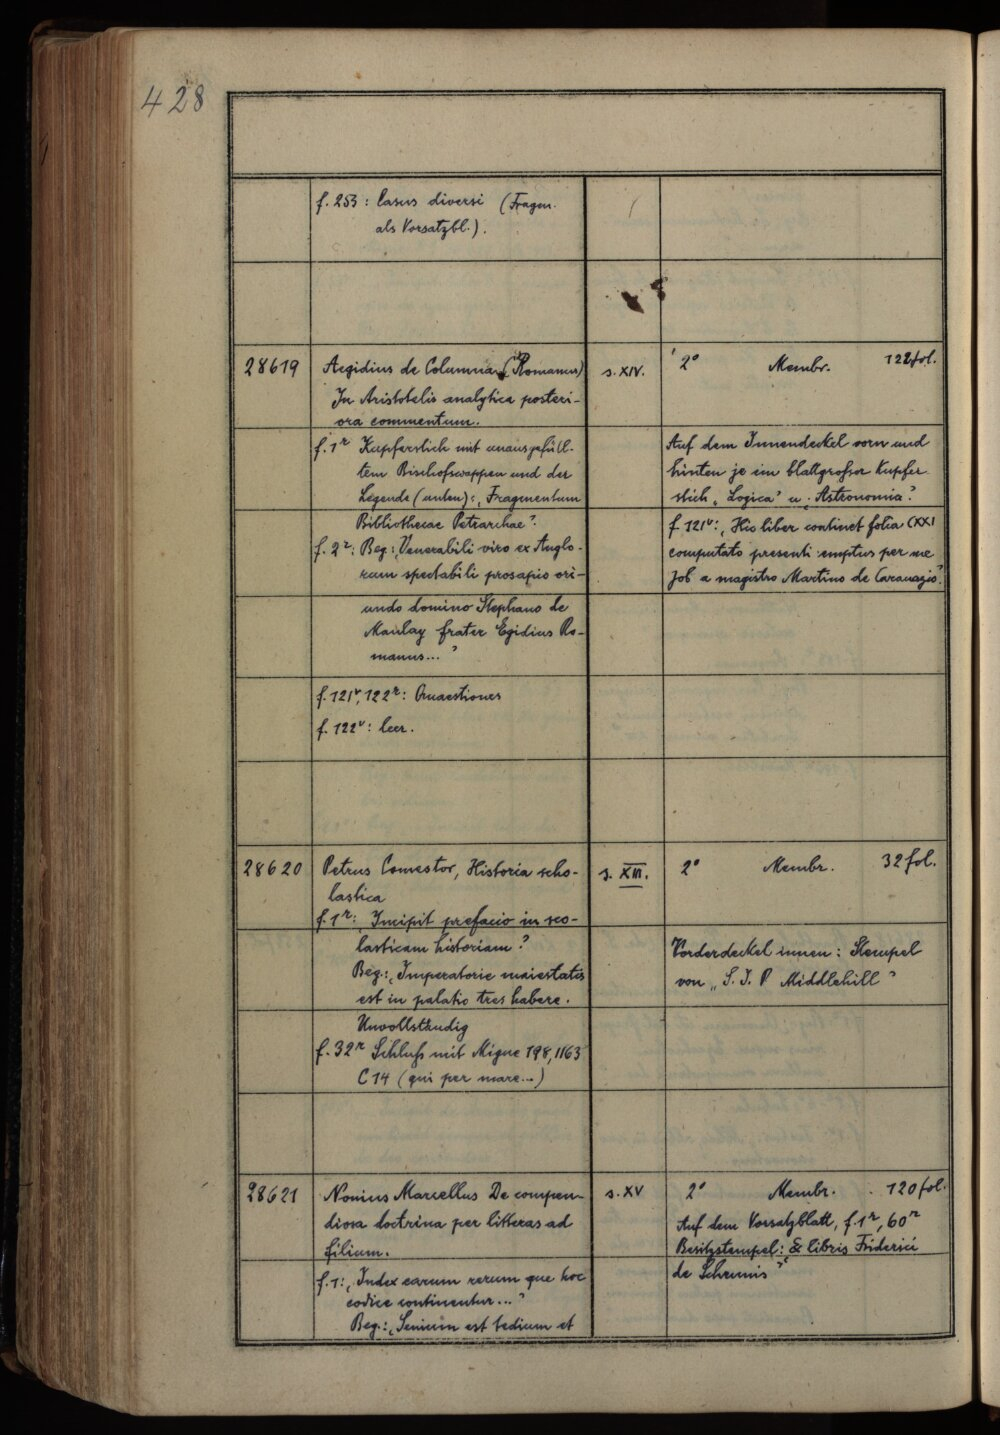 428
f. 253: Casus diversi (Fragm.
als Vorsatzbl.).
28619 Aegidius de Columna (Romanus) s. XIV. 2° Membr. 122 fol.
In Aristotelis analytica posteri-
ora commentum.
f. 1r Kupferstich mit unausgefüll-
tem Bischofswappen und der
Legende (unten): „Fragmentum
Bibliothecae Petrarchae".
f. 2r: Beg.: „Venerabili viro ex Anglo-
rum spectabili prosapio ori-
undo domino Stephano de
Maulay frater Egidius Ro-
manus..."
f. 121v, 122r: Quaestiones
f. 122v: leer.
Auf dem Innendeckel vorn und
hinten je ein blattgroßer Kupfer-
stich „Logica" u. „Astronomia".
f. 121v: „Hic liber continet folia CXXI
computato presenti emptus per me
Job a magistro Martino de Caravagio".
28620 Petrus Comestor, Historia scho- s. XIII. 2° Membr. 32 fol.
lastica
f. 1r: „Incipit prefacio in sco-
lasticam historiam".
Beg.: „Imperatorie maiestatis
est in palatio tres habere.
Unvollständig
f. 32r Schluß mit Migne 198, 1163
C 14 (qui per mare...)
Vorderdeckel innen: Stempel
von „S. J. P Middlehill"
28621 Nonius Marcellus De compen- s. XV 2° Membr. 120 fol.
diosa doctrina per litteras ad
filium.
f. 1: „Index earum rerum que hoc
codice continentur..."
Beg.: „Senium est tedium et
Auf dem Vorsatzblatt, f. 1r, 60r
Besitzstempel: „E libris Friderici
de Schennis"